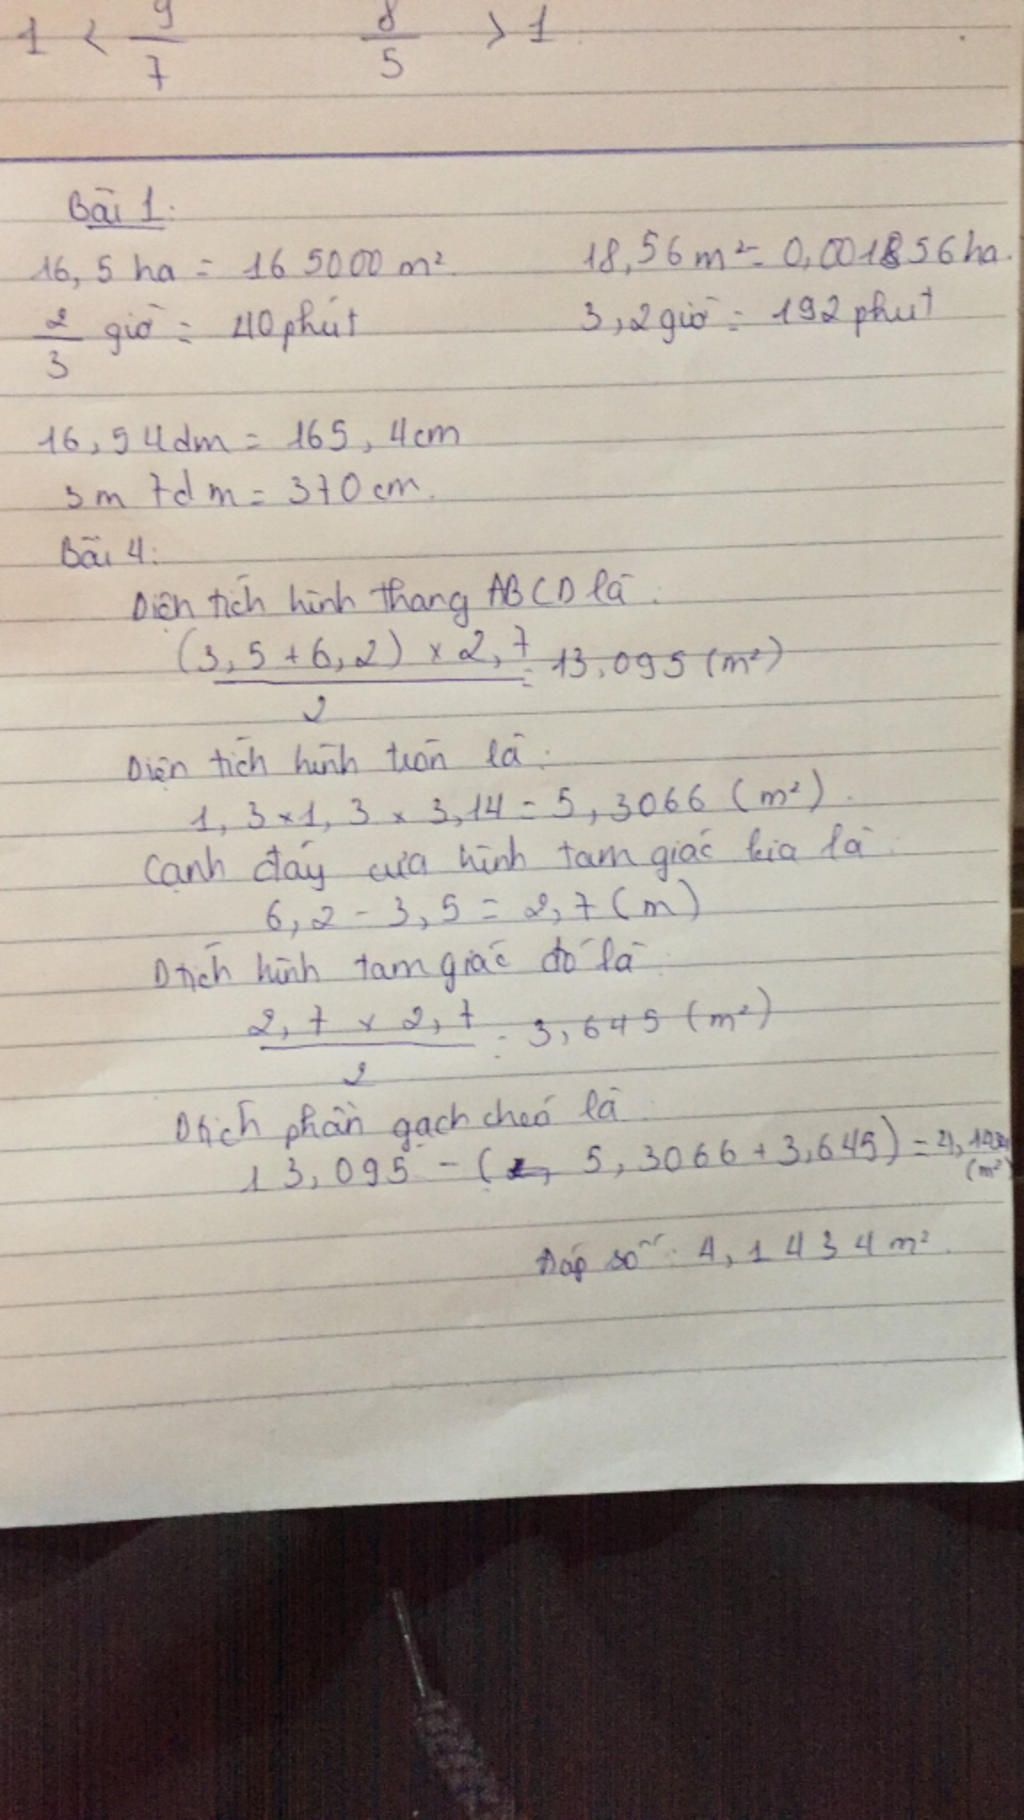 1 < 9/7    8/5 > 1
Bài 1:
16,5 ha = 165000 m²    18,56 m² = 0,001856 ha.
2/3 giờ = 40 phút    3,2 giờ = 192 phút
16,54 dm = 165,4 cm
3m 7dm = 370 cm.
Bài 4:
Diện tích hình thang ABCD là:
(3,5 + 6,2) × 2,7 / 2 = 13,095 (m²)
Diện tích hình tròn là:
1,3 × 1,3 × 3,14 = 5,3066 (m²).
Cạnh đáy của hình tam giác kia là:
6,2 - 3,5 = 2,7 (m)
Dtích hình tam giác đó là:
2,7 × 2,7 / 2 = 3,645 (m²)
Dtích phần gạch chéo là:
13,095 - (5,3066 + 3,645) = 4,1434 (m²)
Đáp số: 4,1434 m².